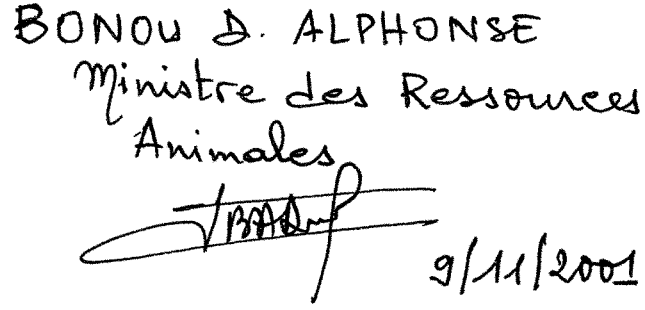 BONOU D. ALPHONSE
Ministre des Ressources
Animales
9/11/2001